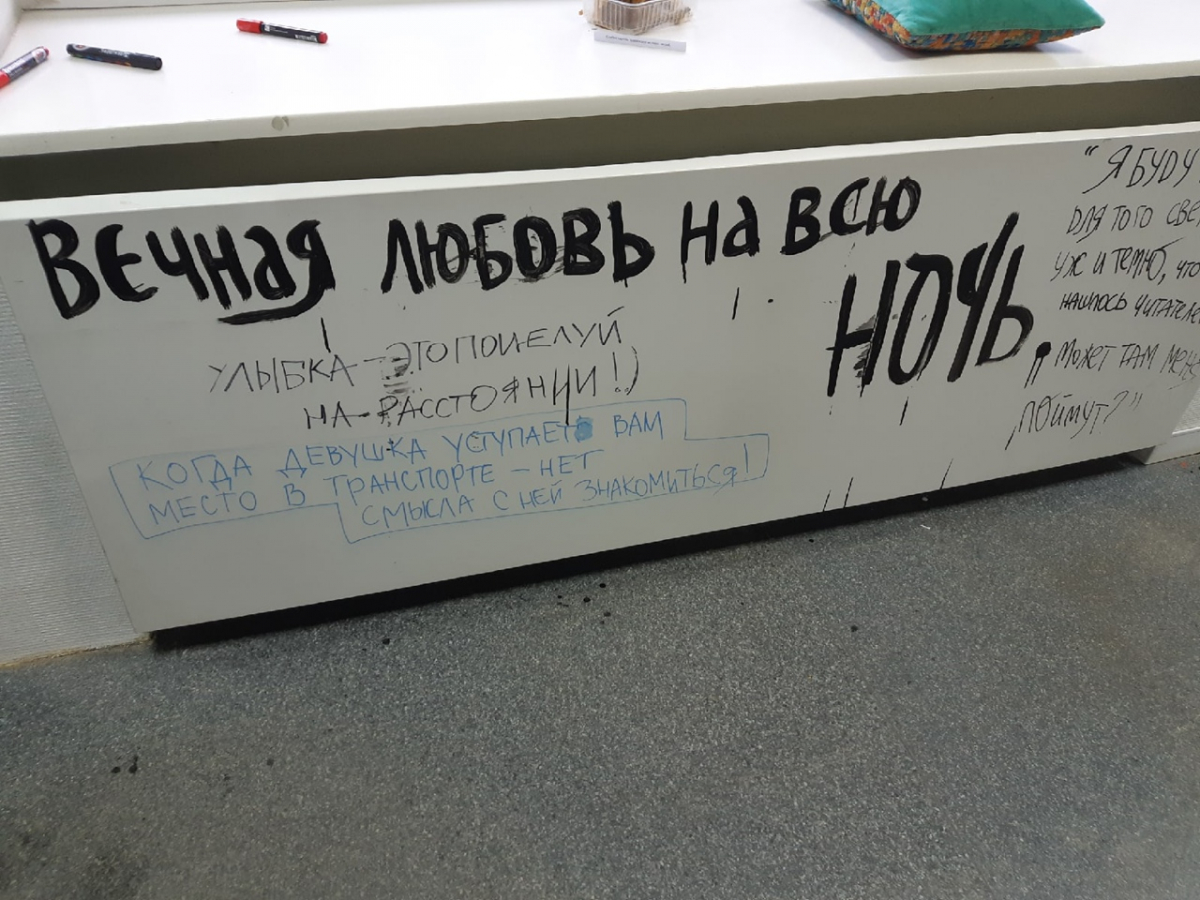 Вечная любовь на всю
ночь
УЛЫБКА - ЭТО ПОЦЕЛУЙ
НА РАССТОЯНИИ!)
КОГДА ДЕВУШКА УСТУПАЕТ ВАМ
МЕСТО В ТРАНСПОРТЕ - НЕТ
СМЫСЛА С НЕЙ ЗНАКОМИТЬСЯ!
"Я БУДУ
ДЛЯ ТОГО СВЕ
УЖ И ТЕМНО, ЧТО
НАШЛОСЬ ЧИТАТЕЛЕ
МОЖЕТ ТАМ МЕНЯ
ПОЙМУТ?"